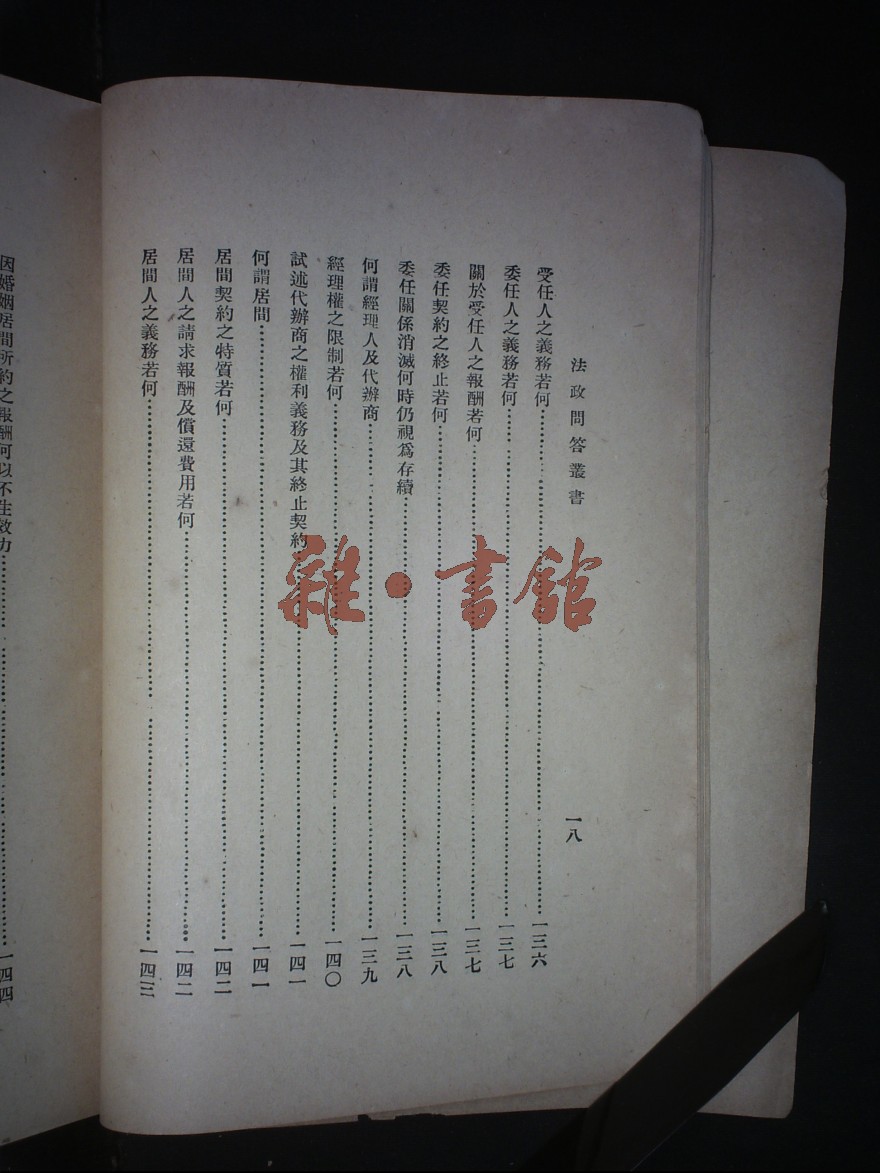 法政問答叢書
一八
受任人之義務若何……一三六
委任人之義務若何……一三七
關於受任人之報酬若何……一三七
委任契約之終止若何……一三八
委任關係消滅何時仍視爲存續……一三八
何謂經理人及代辦商……一三九
經理權之限制若何……一四〇
試述代辦商之權利義務及其終止契約……一四一
何謂居間……一四一
居間契約之特質若何……一四二
居間人之請求報酬及償還費用若何……一四二
居間人之義務若何……一四三
因婚姻居間所約之報酬何以不生效力……一四四
雜·書館